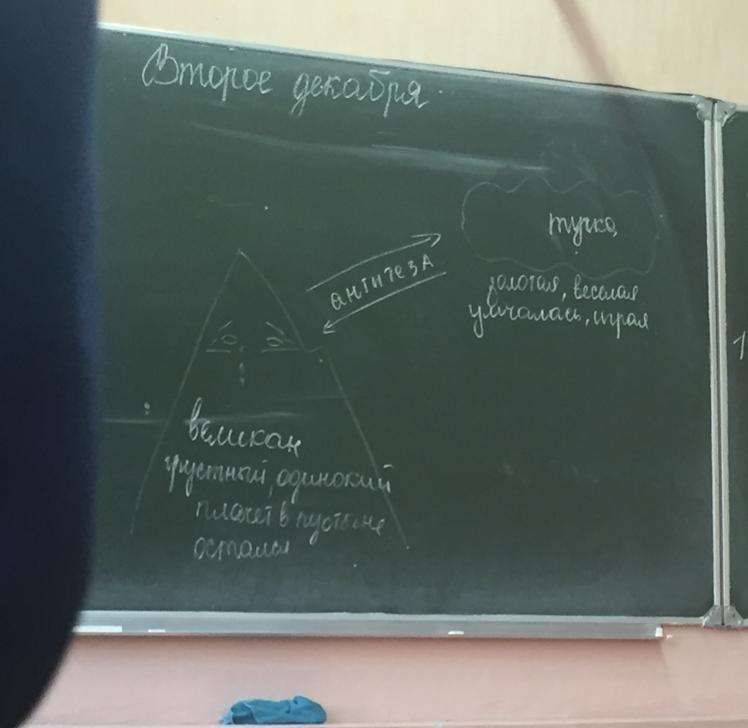 Второе декабря.
тучка
антитеза
золотая, веселая
умчалась, играя
великан
грустный, одинокий
плачет в пустыне
остался